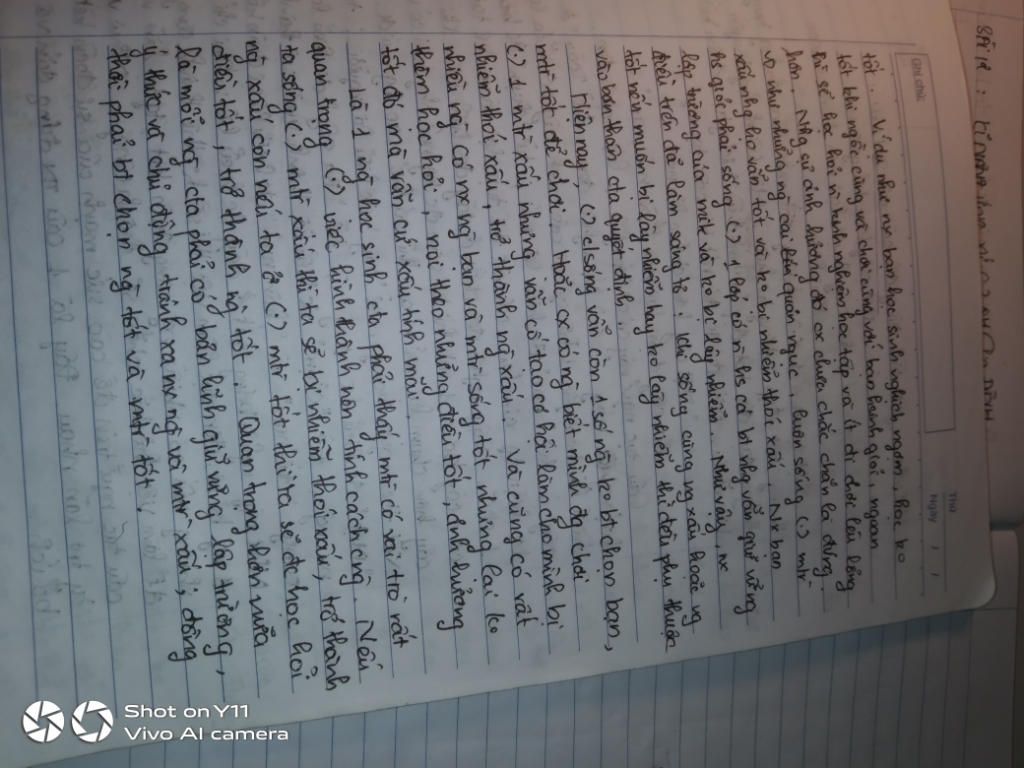 Ghi chú:
Thứ
Ngày / /
tốt... Ví dụ như nx bạn học sinh nghịch ngợm, học ko
tốt khi ngồi cùng và chơi cùng với bạn lành giỏi, ngoan
thì sẽ học hỏi n kinh nghiệm học tập và ít đi chơi lêu lổng
hơn. Nhg sự ảnh hưởng đó cx chưa chắc chắn là đúng.
Vd như những ng cao tản quản ngục, luôn sống (.) mtr
xấu nhg họ vẫn tốt và ko bị nhiễm thói xấu. Nx bạn
hs giỏi phải sống (.) 1 lớp có n hs cá bị nhg vẫn giữ vững
lập trường của mình và ko bị lây nhiễm. Như vậy, nx
điều trên đã làm sáng tỏ: khi sống cùng ng xấu hoặc ng
tốt nếu muốn bị lây nhiễm hay ko lây nhiễm thì đều phụ thuộc
vào bản thân cta quyết định.
Hiện nay, (.) c/sống vẫn còn 1 số ng ko bt chọn bạn,
mtr tốt để chơi. Hoặc cx có ng biết mình đg chơi
(.) 1 mtr xấu nhưng vẫn cố tạo cơ hội làm cho mình bị
nhiễm thói xấu, trở thành ng xấu. Và cũng có rất
nhiều ng có nx ng bạn và mtr sống tốt nhưng lại ko
thèm học hỏi, noi theo những điều tốt, định hướng
tốt đó mà vẫn cứ xấu tính mãi.
Là 1 ng học sinh cta phải thấy mtr có vai trò rất
quan trọng (.) việc hình thành nên tính cách cng. Nếu
ta sống (.) mtr xấu thì ta sẽ bị nhiễm thói xấu, trở thành
ng xấu còn nếu ta ở (.) mtr tốt thì ta sẽ đc học hỏi
điều tốt, trở thành ng tốt. Quan trọng hơn nữa
là mỗi ng cta phải có bản lĩnh giữ vững lập trường,
ý thức và chủ động tránh xa nx ng và mtr xấu, đồng
thời phải bt chọn ng tốt và mtr tốt.
Shot on Y11
Vivo AI camera